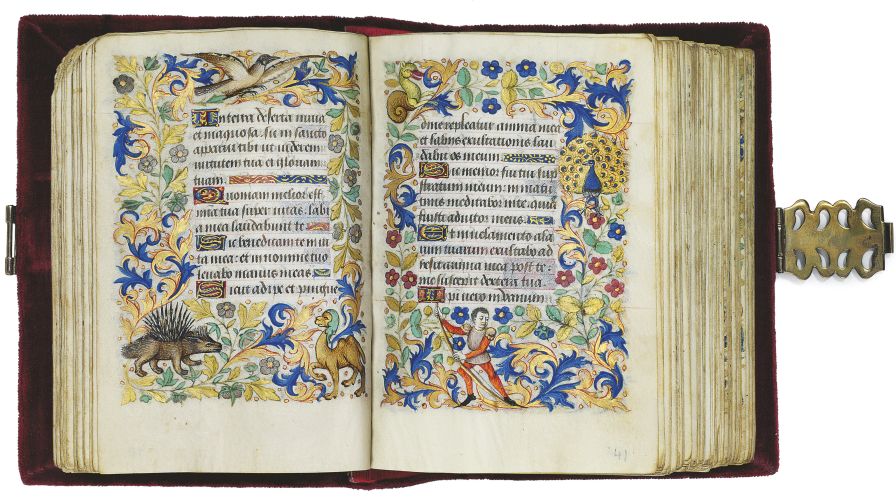 In terra deserta inuia
et inaquosa. sic in sancto
apparui tibi ut uiderem
uirtutem tua et gloriam
tuam.
Quoniam melior est
mia tua super uitas. labi
a mea laudabunt te.
Sic benedicam te in ui
ta mea: et in nomine tuo
leuabo manus meas.
Sicut adipe et pingue
dine repleatur anima mea
et labiis exultationis lau
dabit os meum.
Si memor fui tui sup
stratum meum in matuti
nis meditabor in te. quia
fuisti adiutor meus.
Et in uelamento ala
rum tuarum exultabo ad
hesit anima mea post te.
me suscepit dextera tua.
Ipi uero in uanum
41